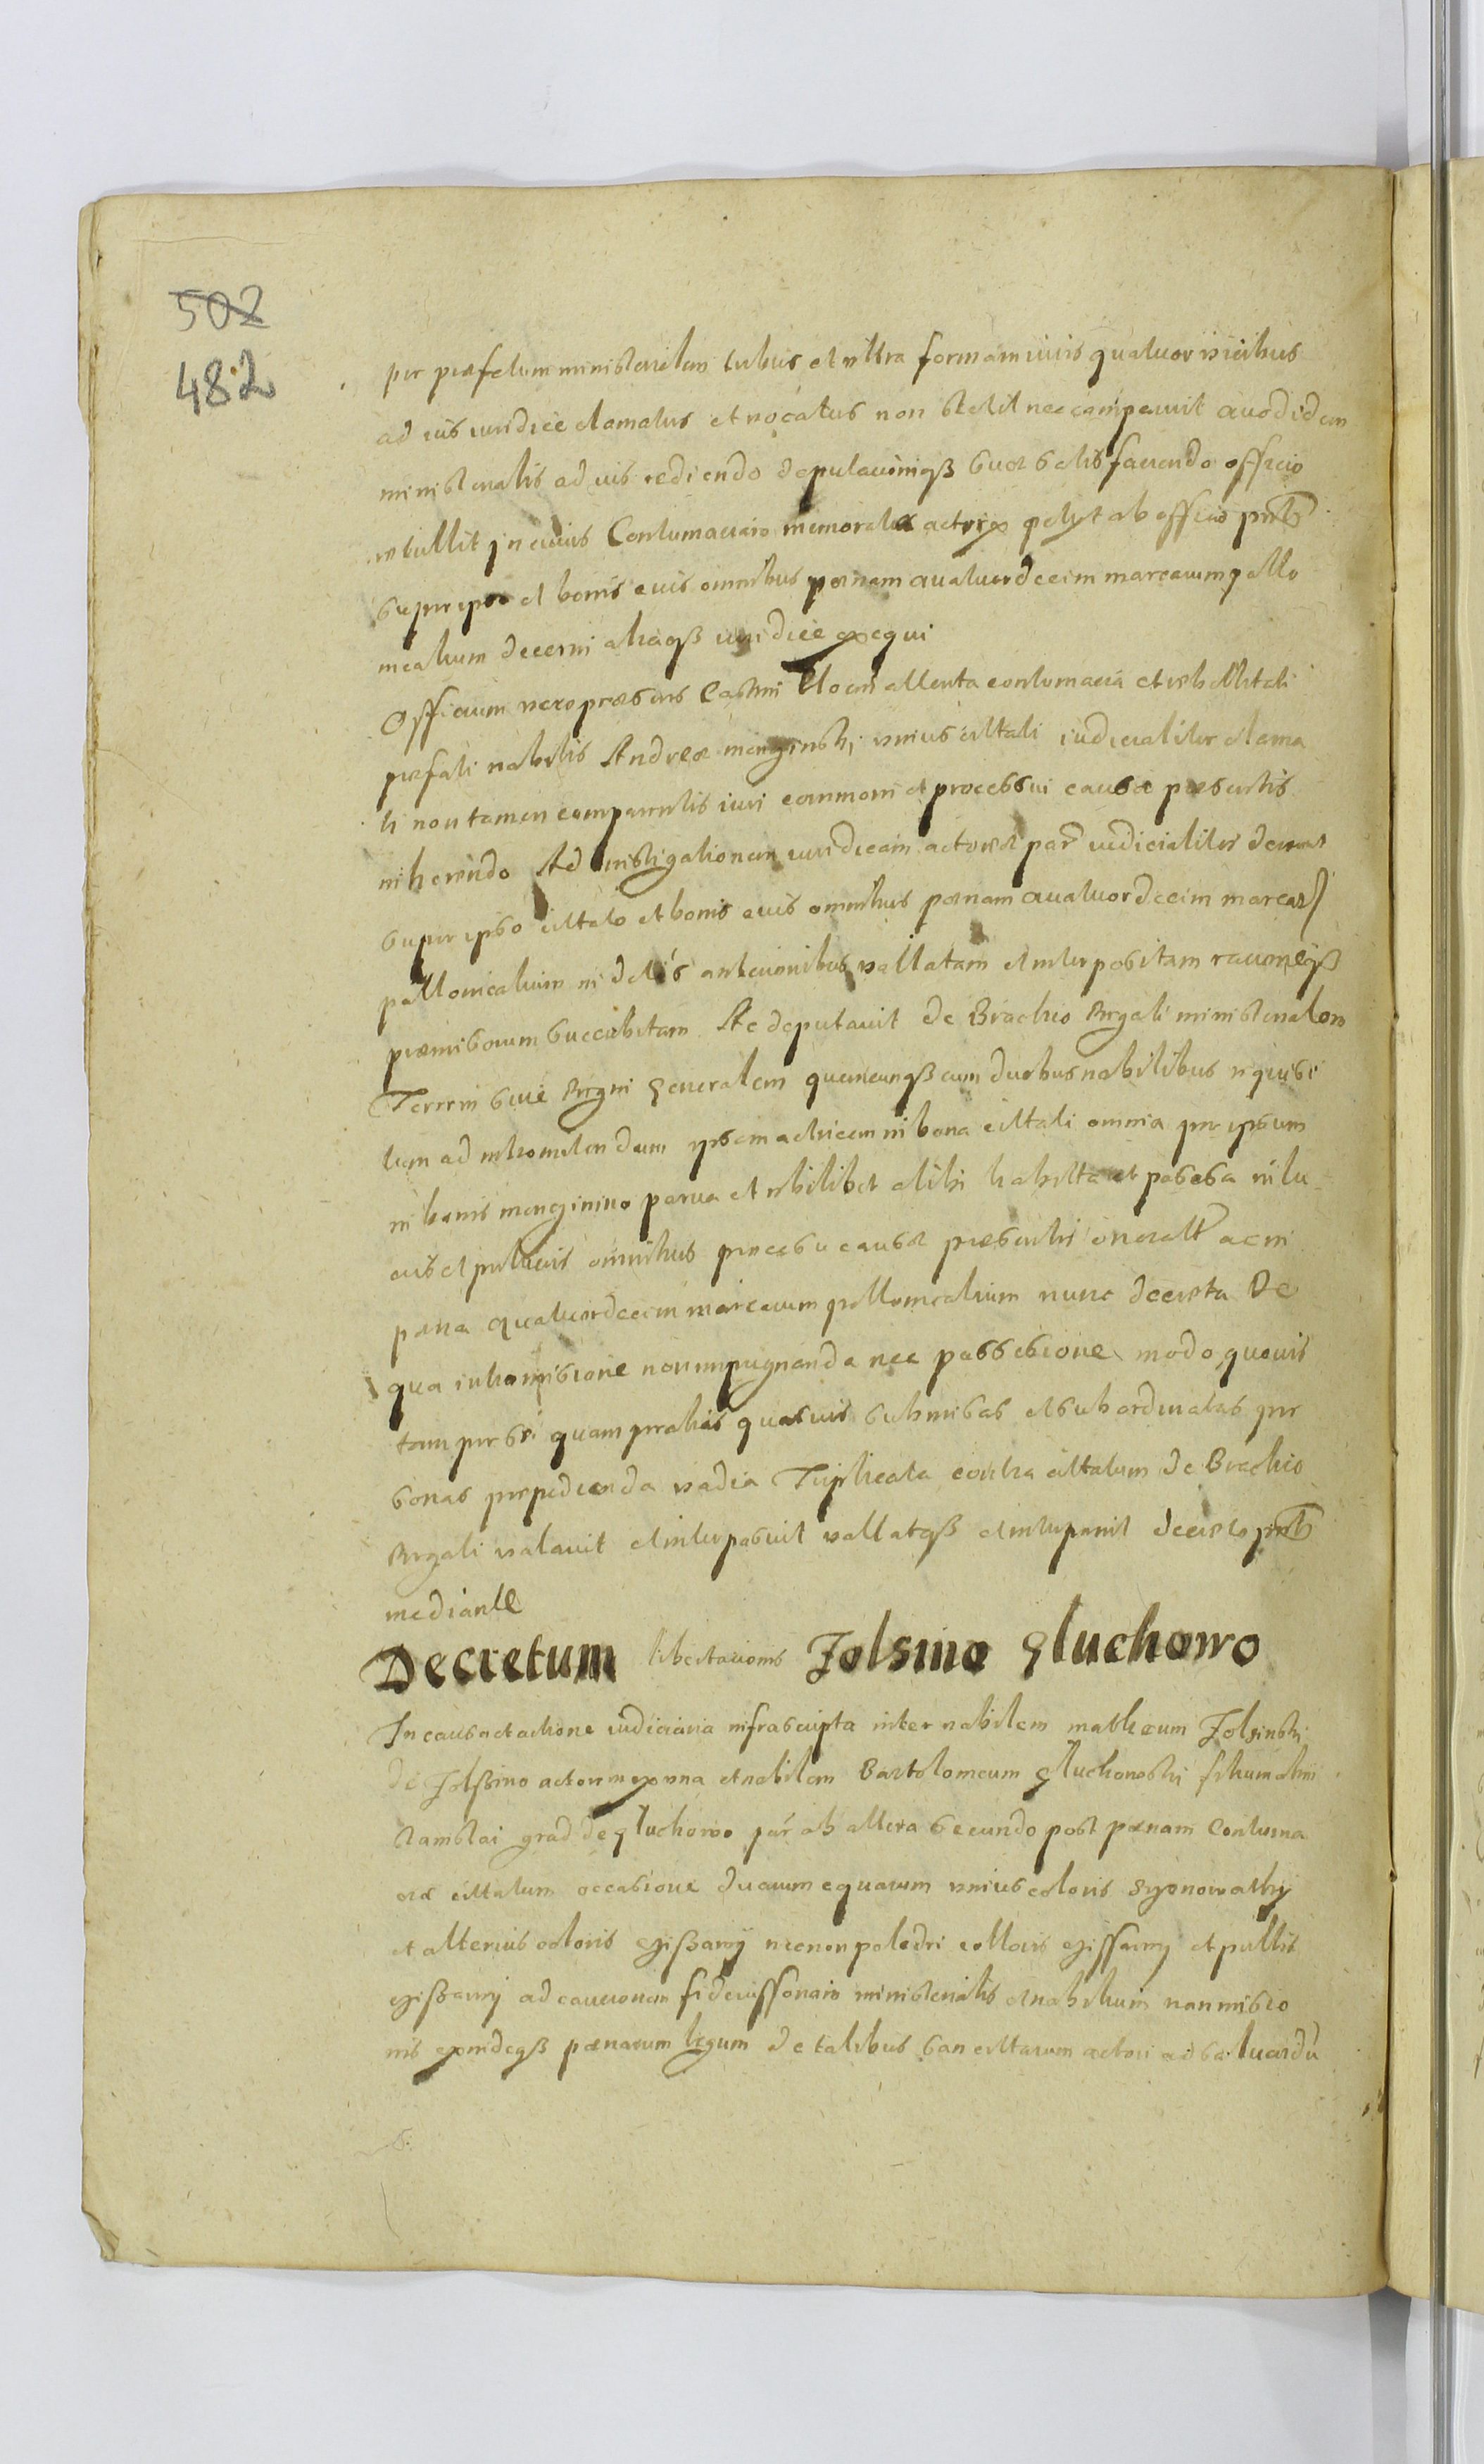 502
482
per præfatum ministerialem tribus et ultra formam iuris quatuor vicibus
ad ius iuridice clamatus et vocatus non stetit nec comparuit quod idem
ministerialis ad ius rediendo deputationiqß suæ satisfaciendo officio
retullit In cuius Contumaciam memorata actrix petyt ab officio pntb
super ipso et bonis eius omnibus pœnam quatuordecim marcarum pollo
nicalium decerni aliaqß iuridice exequi
Officium vero præsens Castrense attenta contumacia et rebellitate
præfati nobilis Andreæ menginski unius citati iudicialiter clama
ti non tamen comparentis iuri communi et processui causæ præsentis
inherendo Ad instigationem iuridicam actoreæ par iudicialiter
super ipso citato et bonis eius omnibus pœnam quatuordecim marcar
pollonicalium in actis anterionibus vallatam et interpositam rationeqß
præmissorum succubitam Ac deputavit de Brachio Regali ministerialem
Terrarum sive Regni Generalem quemcunqß cum duobus nobilibus requisi
tum ad intromitendum ipsam actricem in bona citati omnia per ipsum
in bonis mengnino parua et ubilibet alibi habita et possessa in lu
cris et pœnis omnibus processu causæ præsentis ac in
pœna quatuordecim marcarum pollonicalium nunc decreta De
qua intromissione non impugnanda nec possessione modo quovis
tam per se quam per alias quasvis submissas et subordinatas per
sonas præpedienda vadia Triplicata contra citatum de Brachio
Regali valavit et interposuit vallatqß et interponit decreto pntb
mediante
Decretum libertationis Jolsino Gluchowo
In causa et actione iudiciaria infrascripta inter nobilem matheum Jolsinski
de Jolßino actorem ex una et nobilem Bartolomeum Gluchowski filium olim
Stanislai grad de Gluchowo par ab altera secundo post pœnam Contuma
ciæ citatum occasione duarum equarum unius coloris
et alterius coloris gißawy necnon poledri colloris gissawy et pullis
gißawy ad cautionem fideiussoriam ministerialis et nobilium non misso
nis exindeqß pœnarum legum de talibus sancitarum actori ad saluandū